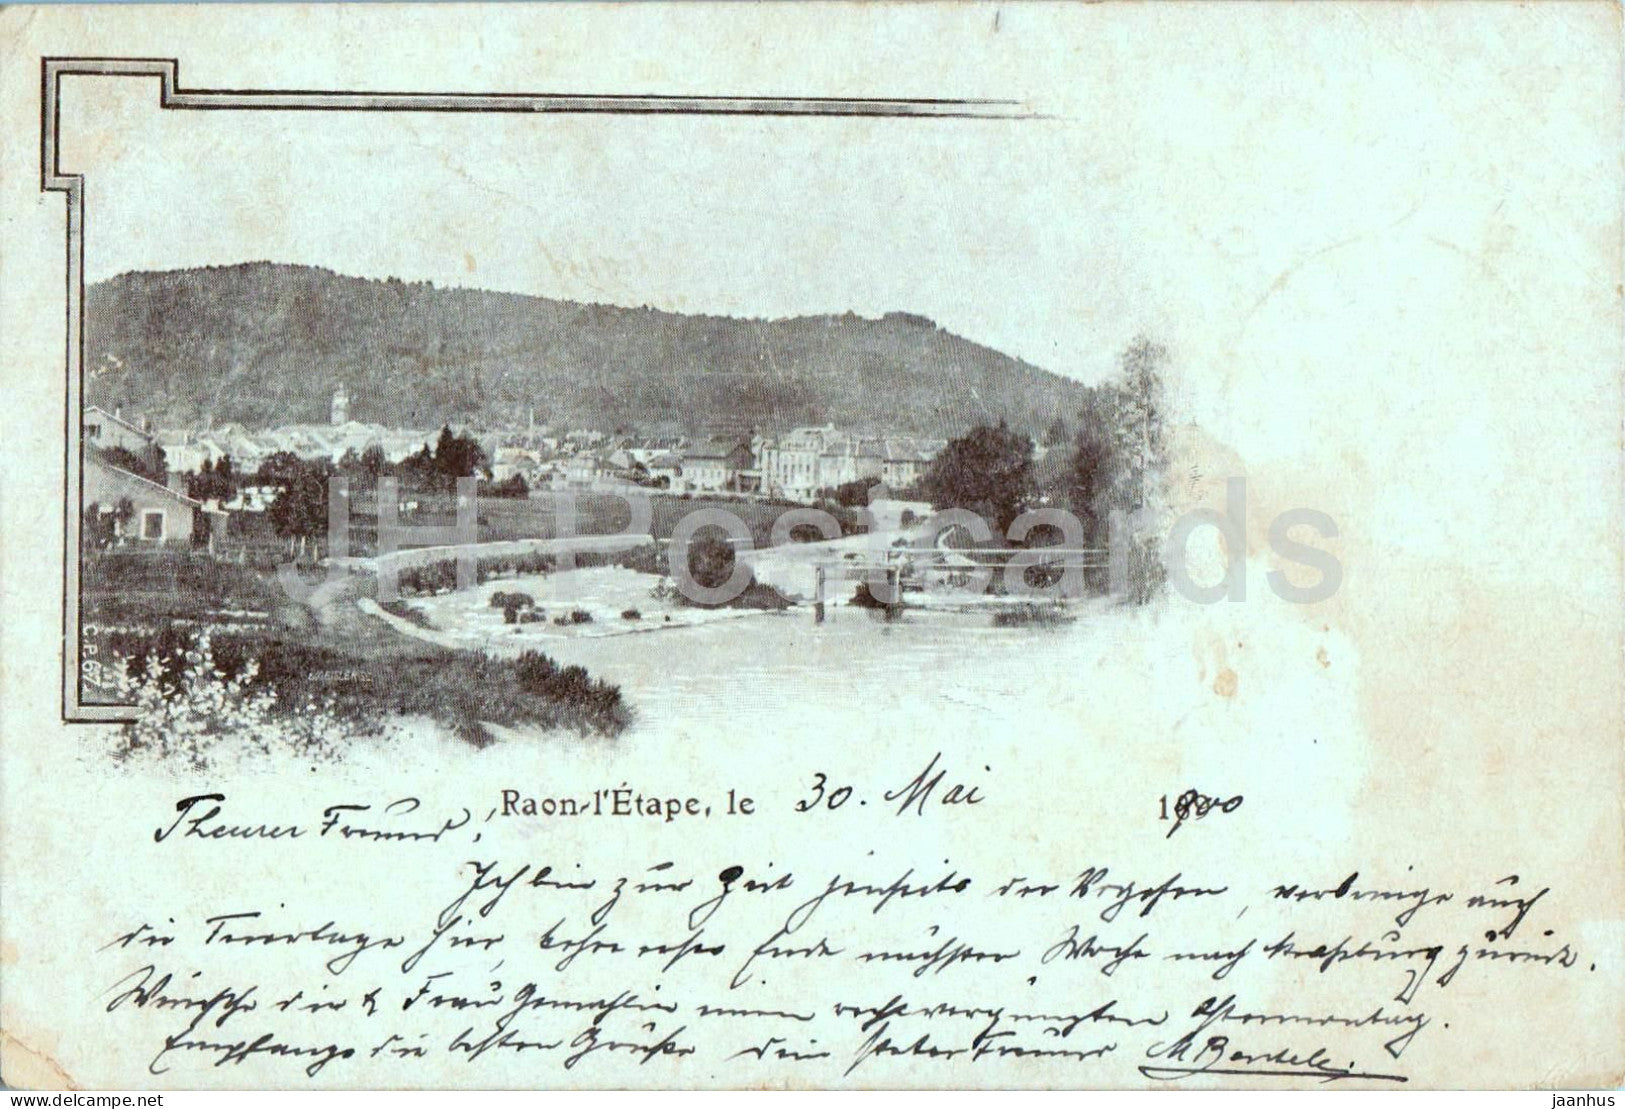 C.P. 67
JH Postcards
Raon-l'Étape, le 30. Mai 1900
Theurer Freund!
Ich bin zur Zeit jenseits der Vogesen, verbringe auch
die Feiertage hier, kehre erst Ende nächster Woche nach Straßburg zurück.
Wünsche dir & Frau Gemahlin einen recht vergnügten Ostermontag.
Empfange die besten Grüße dein steter Freund M Bartele.
hippostcard.com
jaanhus